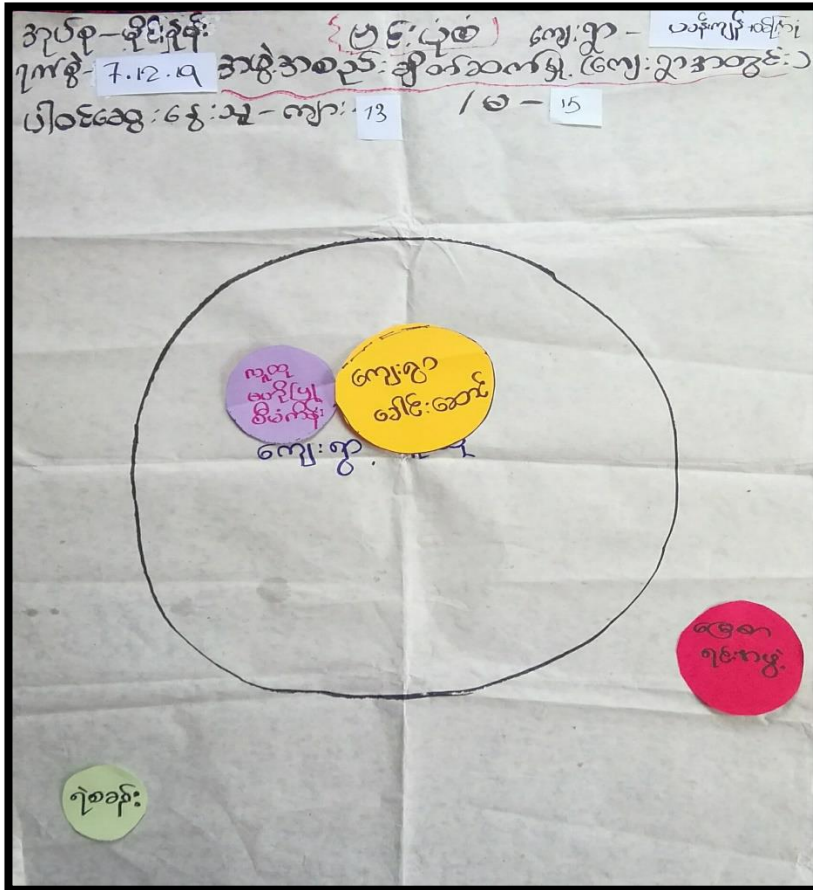 အုပ်စု - မိုင်းနိုင်း {ဗင်းပုံစံ} ကျေးရွာ -
ရက်စွဲ - 7.12.19 အဖွဲ့အစည်းချိတ်ဆက်မှု (ကျေးရွာအတွင်း)
ပါဝင်ဆွေးနွေးသူ - ကျား - 13 / မ - 15
လူထု
ဗဟိုပြု
စီမံကိန်း
ကျေးရွာ
ခေါင်းဆောင်
ကျေးရွာ
မြေစာ
ရင်းအဖွဲ့
ရဲစခန်း